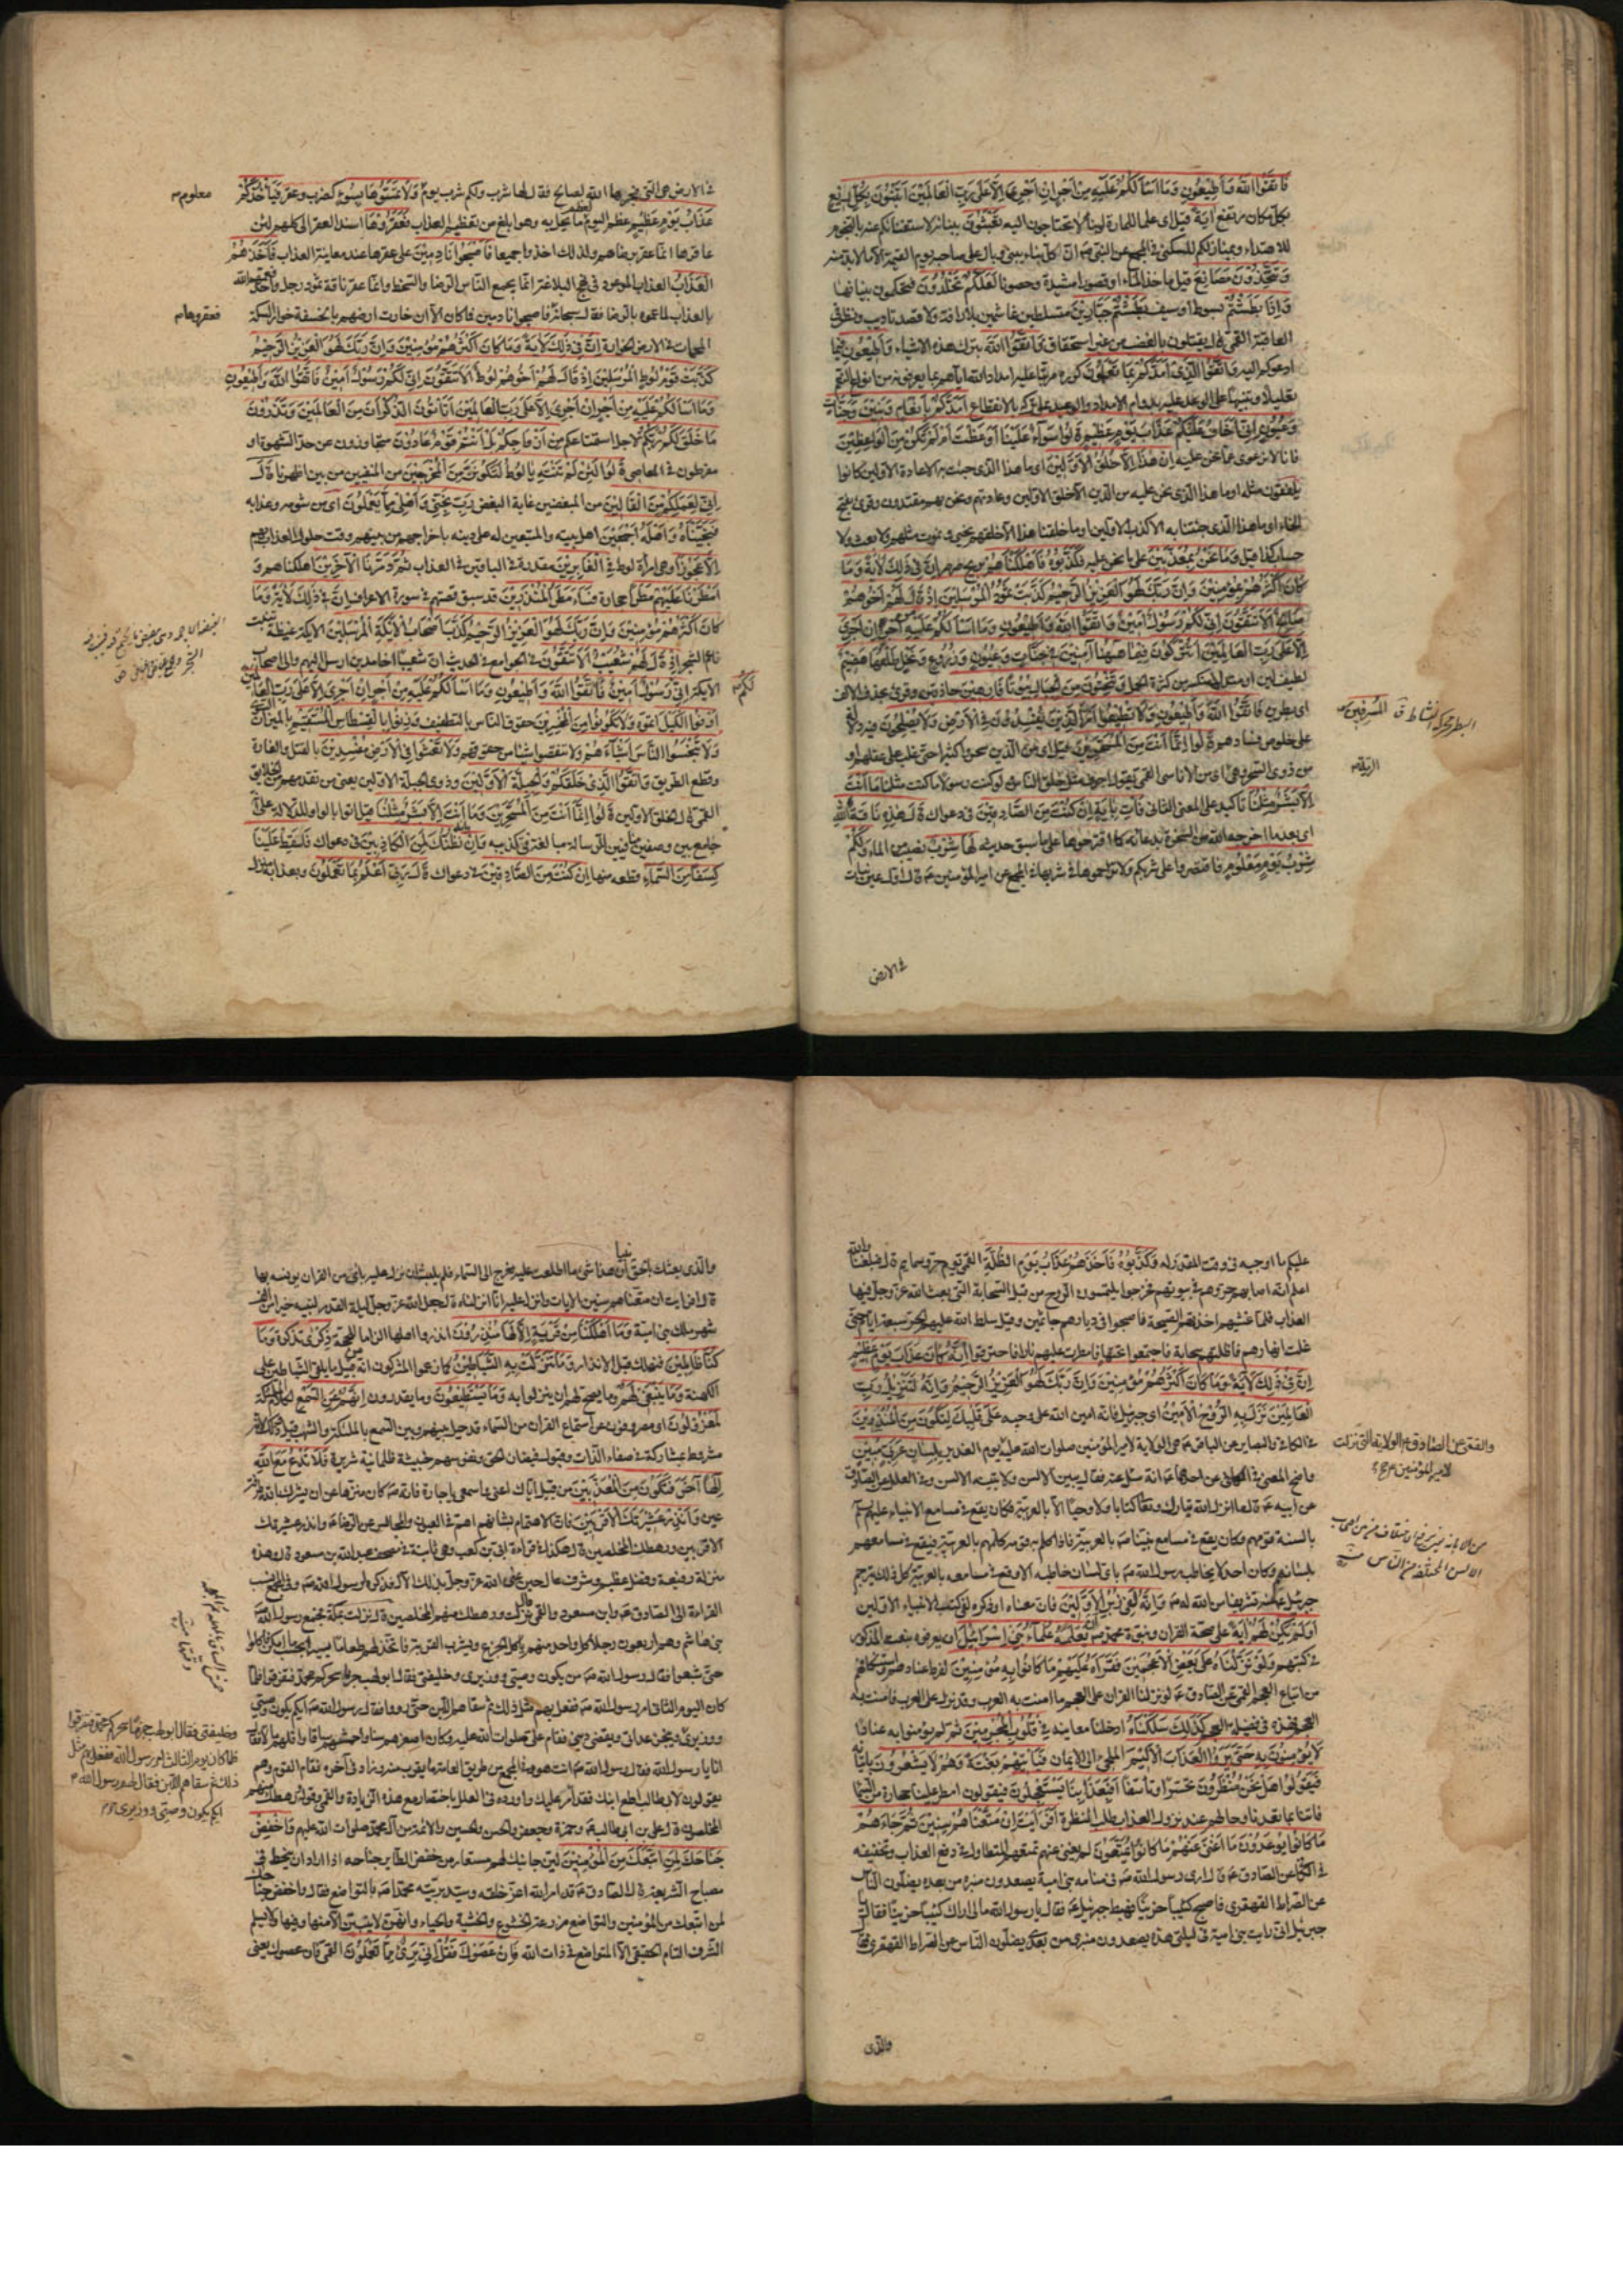 فَاتَّقُوا اللَّهَ وَأَطِيعُونِ وَمَا أَسْأَلُكُمْ عَلَيْهِ مِنْ أَجْرٍ إِنْ أَجْرِيَ إِلَّا عَلَى رَبِّ الْعَالَمِينَ أَتَبْنُونَ بِكُلِّ رِيعٍ
بكل مكان مرتفع آيَةً قيل اى علما للمارة
للاهتداء
وَتَتَّخِذُونَ مَصَانِعَ قيل ماخذ الماء او قصورا مشيدة وحصونا لَعَلَّكُمْ تَخْلُدُونَ فتحكمون بنيانها
وَإِذَا بَطَشْتُمْ بسوط او سيف بَطَشْتُمْ جَبَّارِينَ متسلطين غاشمين بلا رافة ولا قصد تاديب ونظر فى
العاقبة القمى قال يقتلون بالغضب من غير استحقاق فَاتَّقُوا اللَّهَ بترك هذه الاشياء وَأَطِيعُونِ فيما
ادعوكم اليه وَاتَّقُوا الَّذِي أَمَدَّكُمْ بِمَا تَعْلَمُونَ
أَمَدَّكُمْ بِأَنْعَامٍ وَبَنِينَ وَجَنَّاتٍ
وَعُيُونٍ إِنِّي أَخَافُ عَلَيْكُمْ عَذَابَ يَوْمٍ عَظِيمٍ قَالُوا سَوَاءٌ عَلَيْنَا أَوَعَظْتَ أَمْ لَمْ تَكُنْ مِنَ الْوَاعِظِينَ
فانا لا نرعوى عما نحن عليه إِنْ هَذَا إِلَّا خُلُقُ الْأَوَّلِينَ اى ما هذا الذى جئت به الا عادة الاولين كانوا
يلفقون مثله او ما هذا الذى نحن عليه من الدين الا خلق الاولين وعادتهم ونحن بهم مقتدون وقرئ بفتح
الخاء اى ما هذا الذى جئتنا به الا كذب الاولين او ما خلقنا هذا الا خلقهم نحيى ونموت مثلهم ولا بعث ولا
حساب كذا قيل وَمَا نَحْنُ بِمُعَذَّبِينَ على ما نحن عليه فَكَذَّبُوهُ فَأَهْلَكْنَاهُمْ بريح صرصر إِنَّ فِي ذَلِكَ لَآيَةً وَمَا
كَانَ أَكْثَرُهُمْ مُؤْمِنِينَ وَإِنَّ رَبَّكَ لَهُوَ الْعَزِيزُ الرَّحِيمُ كَذَّبَتْ ثَمُودُ الْمُرْسَلِينَ إِذْ قَالَ لَهُمْ أَخُوهُمْ
صَالِحٌ أَلَا تَتَّقُونَ إِنِّي لَكُمْ رَسُولٌ أَمِينٌ فَاتَّقُوا اللَّهَ وَأَطِيعُونِ وَمَا أَسْأَلُكُمْ عَلَيْهِ مِنْ أَجْرٍ إِنْ أَجْرِيَ
إِلَّا عَلَى رَبِّ الْعَالَمِينَ أَتُتْرَكُونَ فِيمَا هَاهُنَا آمِنِينَ فِي جَنَّاتٍ وَعُيُونٍ وَزُرُوعٍ وَنَخْلٍ طَلْعُهَا هَضِيمٌ
لطيف لين او متدل منكسر من كثرة الحمل وَتَنْحِتُونَ مِنَ الْجِبَالِ بُيُوتًا فَارِهِينَ حاذقين وقرئ بحذف الالف
اى بطرين فَاتَّقُوا اللَّهَ وَأَطِيعُونِ وَلَا تُطِيعُوا أَمْرَ الَّذِينَ يُفْسِدُونَ فِي الْأَرْضِ وَلَا يُصْلِحُونَ
على خلوص فسادهم قَالُوا إِنَّمَا أَنْتَ مِنَ الْمُسَحَّرِينَ قيل اى من الذين سحروا كثيرا حتى غلب على عقلهم او
من ذوى السحر وهى الرية
إِلَّا بَشَرٌ مِثْلُنَا تاكيد على المعنى الثانى فَأْتِ بِآيَةٍ إِنْ كُنْتَ مِنَ الصَّادِقِينَ فى دعواك قَالَ هَذِهِ نَاقَةٌ
اى بعدما اخرجها الله من الصخرة بدعائه كما اقترحوها على ما سبق حديثه لَهَا شِرْبٌ نصيب من الماء وَلَكُمْ
شِرْبُ يَوْمٍ مَعْلُومٍ فاقتصروا على شربكم ولا تزاحموها فى شربها فى المجمع عن امير المؤمنين ع قال اول عين نبعت
فى الارض
المسرفين
البطر محركة النشاط ق
الرية
فى الارض هى التى فجرها الله لصالح فقال لها شرب ولكم شرب يوم وَلَا تَمَسُّوهَا بِسُوءٍ كضرب وعقر فَيَأْخُذَكُمْ
عَذَابُ يَوْمٍ عَظِيمٍ عظم اليوم لعظم ما يحل به وهو ابلغ من تعظيم العذاب فَعَقَرُوهَا اسند العقر الى كلهم لان
عاقرها انما عقر برضاهم ولذلك اخذوا جميعا فَأَصْبَحُوا نَادِمِينَ على عقرها عند معاينة العذاب فَأَخَذَهُمُ
الْعَذَابُ العذاب الموعود فى نهج البلاغة انما يجمع الناس الرضا والسخط وانما عقر ناقة ثمود رجل واحد
بالعذاب لما عموه بالرضا فقال سبحانه فاصبحوا نادمين فما كان الا ان خارت ارضهم بالخسفة خوار السكة
المحماة فى الارض الخوارة إِنَّ فِي ذَلِكَ لَآيَةً وَمَا كَانَ أَكْثَرُهُمْ مُؤْمِنِينَ وَإِنَّ رَبَّكَ لَهُوَ الْعَزِيزُ الرَّحِيمُ
كَذَّبَتْ قَوْمُ لُوطٍ الْمُرْسَلِينَ إِذْ قَالَ لَهُمْ أَخُوهُمْ لُوطٌ أَلَا تَتَّقُونَ إِنِّي لَكُمْ رَسُولٌ أَمِينٌ فَاتَّقُوا اللَّهَ وَأَطِيعُونِ
وَمَا أَسْأَلُكُمْ عَلَيْهِ مِنْ أَجْرٍ إِنْ أَجْرِيَ إِلَّا عَلَى رَبِّ الْعَالَمِينَ أَتَأْتُونَ الذُّكْرَانَ مِنَ الْعَالَمِينَ وَتَذَرُونَ
مَا خَلَقَ لَكُمْ رَبُّكُمْ لاجل استمتاعكم مِنْ أَزْوَاجِكُمْ بَلْ أَنْتُمْ قَوْمٌ عَادُونَ متجاوزون عن حد الشهوة او
مفرطون فى المعاصى قَالُوا لَئِنْ لَمْ تَنْتَهِ يَا لُوطُ لَتَكُونَنَّ مِنَ الْمُخْرَجِينَ من المنفيين من بين اظهرنا قَالَ
إِنِّي لِعَمَلِكُمْ مِنَ الْقَالِينَ من المبغضين غاية البغض رَبِّ نَجِّنِي وَأَهْلِي مِمَّا يَعْمَلُونَ اى من شومه وعذابه
فَنَجَّيْنَاهُ وَأَهْلَهُ أَجْمَعِينَ اهل بيته والمتبعين له على دينه باخراجهم من بينهم وقت حلول العذاب بهم
إِلَّا عَجُوزًا وهى امرأة لوط فِي الْغَابِرِينَ مقدرة فى الباقين فى العذاب ثُمَّ دَمَّرْنَا الْآخَرِينَ اهلكناهم وَ
أَمْطَرْنَا عَلَيْهِمْ مَطَرًا حجارة فَسَاءَ مَطَرُ الْمُنْذَرِينَ قد سبق قصتهم فى سورة الاعراف إِنَّ فِي ذَلِكَ لَآيَةً وَمَا
كَانَ أَكْثَرُهُمْ مُؤْمِنِينَ وَإِنَّ رَبَّكَ لَهُوَ الْعَزِيزُ الرَّحِيمُ كَذَّبَ أَصْحَابُ الْأَيْكَةِ الْمُرْسَلِينَ الايكة غيضة تنبت
ناعم الشجر إِذْ قَالَ لَهُمْ شُعَيْبٌ أَلَا تَتَّقُونَ فى الجوامع فى الحديث ان شعيبا اخا مدين ارسل اليهم والى اصحاب
الايكة إِنِّي رَسُولٌ أَمِينٌ فَاتَّقُوا اللَّهَ وَأَطِيعُونِ وَمَا أَسْأَلُكُمْ عَلَيْهِ مِنْ أَجْرٍ إِنْ أَجْرِيَ إِلَّا عَلَى رَبِّ الْعَالَمِينَ
أَوْفُوا الْكَيْلَ اتموه وَلَا تَكُونُوا مِنَ الْمُخْسِرِينَ حقوق الناس بالتطفيف وَزِنُوا بِالْقِسْطَاسِ الْمُسْتَقِيمِ بالميزان السوى
وَلَا تَبْخَسُوا النَّاسَ أَشْيَاءَهُمْ ولا تنقصوا شيئا من حقوقهم وَلَا تَعْثَوْا فِي الْأَرْضِ مُفْسِدِينَ بالقتل والغارة
وقطع الطريق وَاتَّقُوا الَّذِي خَلَقَكُمْ وَالْجِبِلَّةَ الْأَوَّلِينَ وذوى الجبلة الاولين يعنى من تقدمهم من الخلائق
القمى قال الخلق الاولين قَالُوا إِنَّمَا أَنْتَ مِنَ الْمُسَحَّرِينَ وَمَا أَنْتَ إِلَّا بَشَرٌ مِثْلُنَا قيل اتوا بالواو للدلالة على انه
جامع بين وصفين متنافيين للرسالة مبالغة فى تكذيبه وَإِنْ نَظُنُّكَ لَمِنَ الْكَاذِبِينَ فى دعواك فَأَسْقِطْ عَلَيْنَا
كِسَفًا مِنَ السَّمَاءِ قطعة منها إِنْ كُنْتَ مِنَ الصَّادِقِينَ فى دعواك قَالَ رَبِّي أَعْلَمُ بِمَا تَعْمَلُونَ وبعذابه منزل
معلوم
فعقروها
لكم
عليكم ما اوجبه فى وقته المقدر له فَكَذَّبُوهُ فَأَخَذَهُمْ عَذَابُ يَوْمِ الظُّلَّةِ القمى يوم حر وسمايم قال فبلغنا والله
اعلم انه اصابهم حر وهم فى بيوتهم فخرجوا يلتمسون الروح من قبل السحابة التى بعث الله عز وجل فيها
العذاب فلما غشيهم اخذتهم الصيحة فاصبحوا فى ديارهم جاثمين وقيل سلط الله عليهم الحر سبعة ايام حتى
غلت انهارهم فاظلتهم سحابة فاجتمعوا تحتها فامطرت عليهم نارا فاحترقوا إِنَّهُ كَانَ عَذَابَ يَوْمٍ عَظِيمٍ
إِنَّ فِي ذَلِكَ لَآيَةً وَمَا كَانَ أَكْثَرُهُمْ مُؤْمِنِينَ وَإِنَّ رَبَّكَ لَهُوَ الْعَزِيزُ الرَّحِيمُ وَإِنَّهُ لَتَنْزِيلُ رَبِّ
الْعَالَمِينَ نَزَلَ بِهِ الرُّوحُ الْأَمِينُ اى جبرئيل فانه امين الله على وحيه عَلَى قَلْبِكَ لِتَكُونَ مِنَ الْمُنْذِرِينَ
فى الكافى والبصاير عن الباقر ع هى الولاية لامير المؤمنين صلوات الله عليه يوم الغدير بِلِسَانٍ عَرَبِيٍّ مُبِينٍ
واضح المعنى فى الكافى عن احدهما ع انه سئل عنه فقال يبين الالسن ولا تبينه الالسن وفى العلل عن الصادق
عن ابيه ع قال ما انزل الله تبارك وتعالى كتابا ولا وحيا الا بالعربية فكان يقع فى مسامع الانبياء عليهم السلم
بالسنة قومهم وكان يقع فى مسامع نبينا ص بالعربية فاذا كلم به قومه كلمهم بالعربية فيقع فى مسامعهم
بلسانهم وكان احد لا يخاطب رسول الله ص باى لسان خاطبه الا وقع فى مسامعه بالعربية كل ذلك يترجم
جبرئيل عنه تشريفا من الله له ص وَإِنَّهُ لَفِي زُبُرِ الْأَوَّلِينَ فان معناه او ذكره لفى كتب الانبياء الاولين
أَوَلَمْ يَكُنْ لَهُمْ آيَةً على صحة القران ونبوة محمد ص أَنْ يَعْلَمَهُ عُلَمَاءُ بَنِي إِسْرَائِيلَ ان يعرفوه بنعته المذكور
فى كتبهم وَلَوْ نَزَّلْنَاهُ عَلَى بَعْضِ الْأَعْجَمِينَ فَقَرَأَهُ عَلَيْهِمْ مَا كَانُوا بِهِ مُؤْمِنِينَ لفرط عنادهم واستنكافهم
من اتباع العجم القمى عن الصادق ع لو نزلنا القران على العجم ما امنت به العرب وقد نزل على العرب فامنت به
العجم فهذه فى فضيلة العجم كَذَلِكَ سَلَكْنَاهُ ادخلنا معاينه فِي قُلُوبِ الْمُجْرِمِينَ ثم لم يؤمنوا به عنادا
لَا يُؤْمِنُونَ بِهِ حَتَّى يَرَوُا الْعَذَابَ الْأَلِيمَ الملجئ الى الايمان فَيَأْتِيَهُمْ بَغْتَةً وَهُمْ لَا يَشْعُرُونَ باتيانه
فَيَقُولُوا هَلْ نَحْنُ مُنْظَرُونَ تحسرا وتاسفا أَفَبِعَذَابِنَا يَسْتَعْجِلُونَ فيقولون امطر علينا حجارة من السماء
فأتنا بما تعدنا وحالهم عند نزول العذاب طلب النظرة أَفَرَأَيْتَ إِنْ مَتَّعْنَاهُمْ سِنِينَ ثُمَّ جَاءَهُمْ
مَا كَانُوا يُوعَدُونَ مَا أَغْنَى عَنْهُمْ مَا كَانُوا يُمَتَّعُونَ لم يغن عنهم تمتعهم المتطاول فى دفع العذاب وتخفيفه
فى الكافى عن الصادق ع قال ارى رسول الله ص فى منامه بنى امية يصعدون منبره من بعده يضلون الناس
عن الصراط القهقرى فاصبح كئيبا حزينا فهبط جبرئيل ع فقال يا رسول الله ما لى اراك كئيبا حزينا فقال يا
جبرئيل انى رايت بنى امية فى ليلتى هذه يصعدون منبرى من بعدى يضلون الناس عن الصراط القهقرى فقال
والذى
والقمى عن الصادق ع الولاية التى نزلت
لامير المؤمنين ع
والذى بعثك بالحق نبيا ان هذا شئ ما اطلعت عليه فعرج الى السماء فلم يلبث ان نزل عليه باى من القران يونسه بها
قال افرايت ان متعناهم سنين الايات وانزل عليه انا انزلناه قال جعل الله عز وجل ليلة القدر لنبيه خيرا من الف
شهر ملك بنى امية وَمَا أَهْلَكْنَا مِنْ قَرْيَةٍ إِلَّا لَهَا مُنْذِرُونَ انذروا اهلها الزاما للحجة ذِكْرَى تذكرة وَمَا
كُنَّا ظَالِمِينَ فنهلك قبل الانذار وَمَا تَنَزَّلَتْ بِهِ الشَّيَاطِينُ كما زعم المشركون انه من قبيل ما يلقى الشياطين على
الكهنة وَمَا يَنْبَغِي لَهُمْ وما يصح لهم ان ينزلوا به وَمَا يَسْتَطِيعُونَ وما يقدرون إِنَّهُمْ عَنِ السَّمْعِ لكلام الملائكة
لَمَعْزُولُونَ اى مصروفون عن استماع القران من السماء قد حيل بينهم وبين السمع بالملائكة والشهب
مشروط بمشاركة فى صفاء الذات وقبول فيضان الحق ونفوسهم خبيثة ظلمانية شريرة فَلَا تَدْعُ مَعَ اللَّهِ
إِلَهًا آخَرَ فَتَكُونَ مِنَ الْمُعَذَّبِينَ من قبيل اياك اعنى واسمعى يا جارة فانه ص كان منزها عن ان يشرك بالله طرفة
عين وَأَنْذِرْ عَشِيرَتَكَ الْأَقْرَبِينَ فان الاهتمام بشانهم اهم فى العيون والمجالس عن الرضا ع وانذر عشيرتك
الاقربين ورهطك المخلصين قال هكذا فى قراءة ابى بن كعب وهى ثابتة فى مصحف عبد الله بن مسعود قال هذه
منزلة رفيعة وفضل عظيم وشرف عال حين عنى الله عز وجل بذلك الال فذكره لرسول الله ص وفى المجمع نسب
القراءة الى الصادق ع وابن مسعود والقمى قال نزلت ورهطك منهم المخلصين قال نزلت بمكة فجمع رسول الله ص
بنى هاشم وهم اربعون رجلا كل واحد منهم ياكل الجذع ويشرب القربة فاتخذ لهم طعاما يسيرا بحسب ما امكن فاكلوا
حتى شبعوا فقال رسول الله ص من يكون وصيى ووزيرى وخليفتى فقال ابو لهب جزما سحركم محمد فتفرقوا فلما
كان اليوم الثانى امر رسول الله ص ففعل بهم مثل ذلك ثم سقاهم اللبن حتى رووا فقال رسول الله ص ايكم يكون وصيى
ووزيرى وينجز عداتى ويقضى دينى فقام على صلوات الله عليه وكان اصغرهم سنا واحمشهم ساقا واقلهم مالا فقال
انا يا رسول الله فقال رسول الله ص انت هو وفى المجمع من طريق العامة ما يقرب منه وزاد فى آخره فقام القوم وهم
يقولون لابى طالب اطع ابنك فقد امر عليك واورده فى العلل باختصار مع هذه الزيادة والقمى وقوله ورهطك منهم
المخلصين قال على بن ابى طالب ع وحمزة وجعفر والحسن والحسين والائمة من آل محمد صلوات الله عليهم وَاخْفِضْ
جَنَاحَكَ لِمَنِ اتَّبَعَكَ مِنَ الْمُؤْمِنِينَ لين جانبك لهم مستعار من خفض الطاير جناحه اذا اراد ان ينحط فى
مصباح الشريعة قال الصادق ع قد امر الله اعز خلقه وسيد بريته محمدا ص بالتواضع فقال واخفض جناحك
لمن اتبعك من المؤمنين والتواضع مزرعة الخشوع والخشية والحياء وانهن لا يتبين الا منها وفيها ولا يسلم
الشرف التام الحقيقى الا للمتواضع فى ذات الله فَإِنْ عَصَوْكَ فَقُلْ إِنِّي بَرِيءٌ مِمَّا تَعْمَلُونَ القمى فان عصوك يعنى
وخليفتى فقال ابو لهب جزما سحركم محمد فتفرقوا
فلما كان يوم الثالث امر رسول الله ففعل بهم مثل
ذلك ثم سقاهم اللبن فقال لهم رسول الله ص
ايكم يكون وصيى ووزيرى